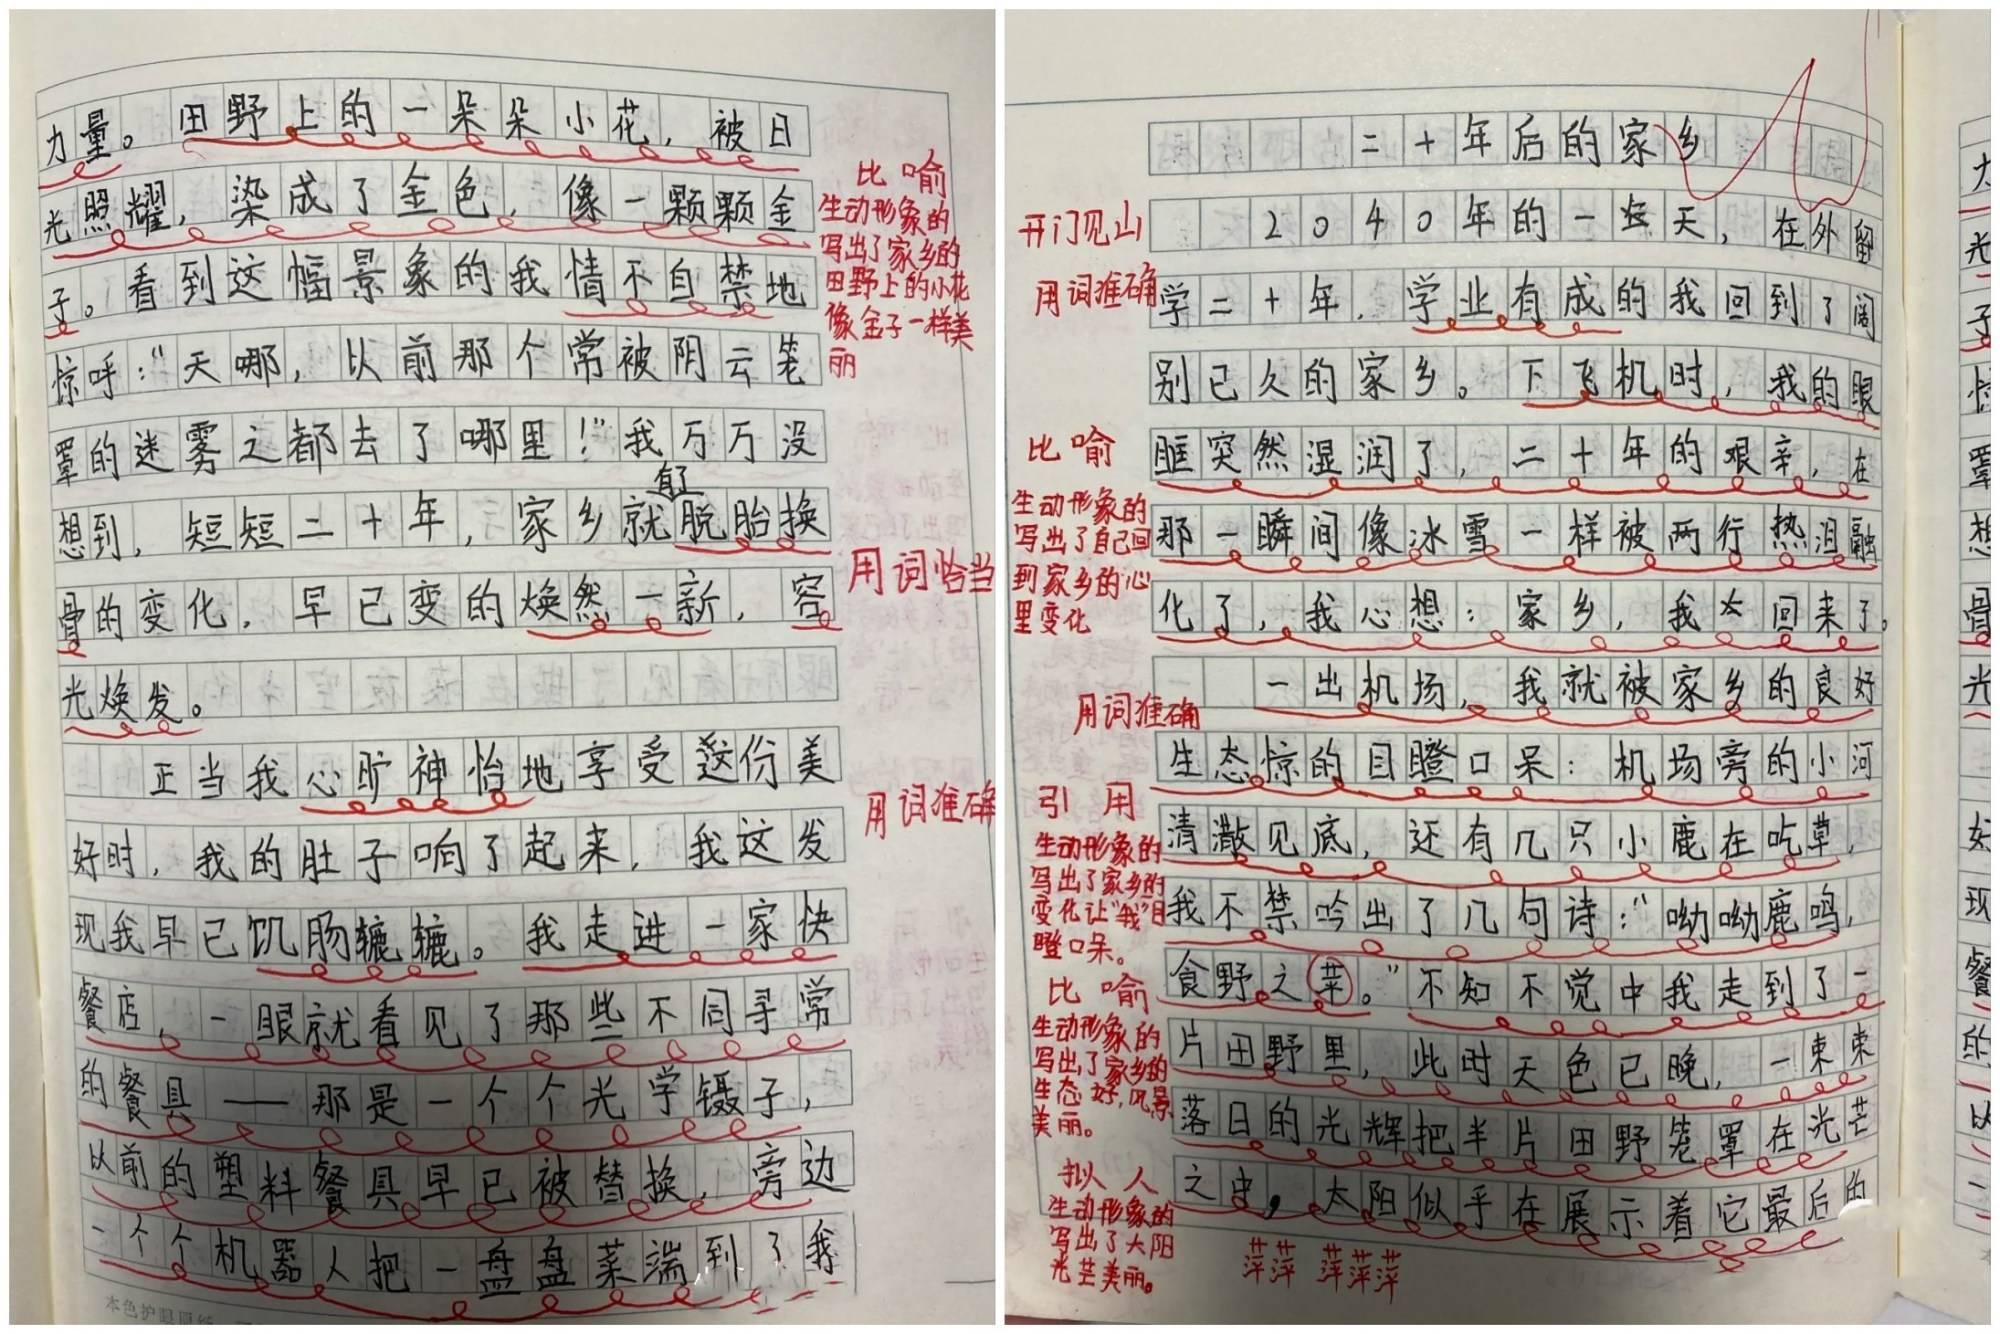 力量。田野上的一朵朵小花，被日
光照耀，染成了金色，像一颗颗金
子。看到这幅景象的我情不自禁地
惊呼：“天哪，以前那个常被阴云笼
罩的迷雾之都去了哪里！”我万万没
有了
想到，短短二十年，家乡就脱胎换
骨的变化，早已变的焕然一新，容
光焕发。
正当我心旷神怡地享受这份美
好时，我的肚子响了起来，我这发
现我早已饥肠辘辘。我走进一家快
餐店，一眼就看见了那些不同寻常
的餐具——那是一个个光学镊子，
以前的塑料餐具早已被替换，旁边
一个个机器人把一盘盘菜端到了我
比喻
生动形象的
写出了家乡的
田野上的小花
像金子一样美
丽
用词恰当
用词准确
二十年后的家乡
2040年的一天，在外留
学二十年，学业有成的我回到了阔
别已久的家乡。下飞机时，我的眼
眶突然湿润了，二十年的艰辛，在
那一瞬间像冰雪一样被两行热泪融
化了，我心想：家乡，我回来了。
一出机场，我就被家乡的良好
生态惊的目瞪口呆：机场旁的小河
清澈见底，还有几只小鹿在吃草，
我不禁吟出了几句诗：“呦呦鹿鸣，
食野之苹。”不知不觉中我走到了一
片田野里，此时天色已晚，一束束
落日的光辉把半片田野笼罩在光芒
之中，太阳似乎在展示着它最后的
开门见山
用词准确
比喻
生动形象的
写出了自己回
到家乡的心
里变化
用词准确
引用
生动形象的
写出了家乡的
变化让“我”目
瞪口呆。
比喻
生动形象的
写出了家乡的
生态好，风景
美丽。
拟人
生动形象的
写出了太阳
光芒美丽。
萍萍 萍萍萍